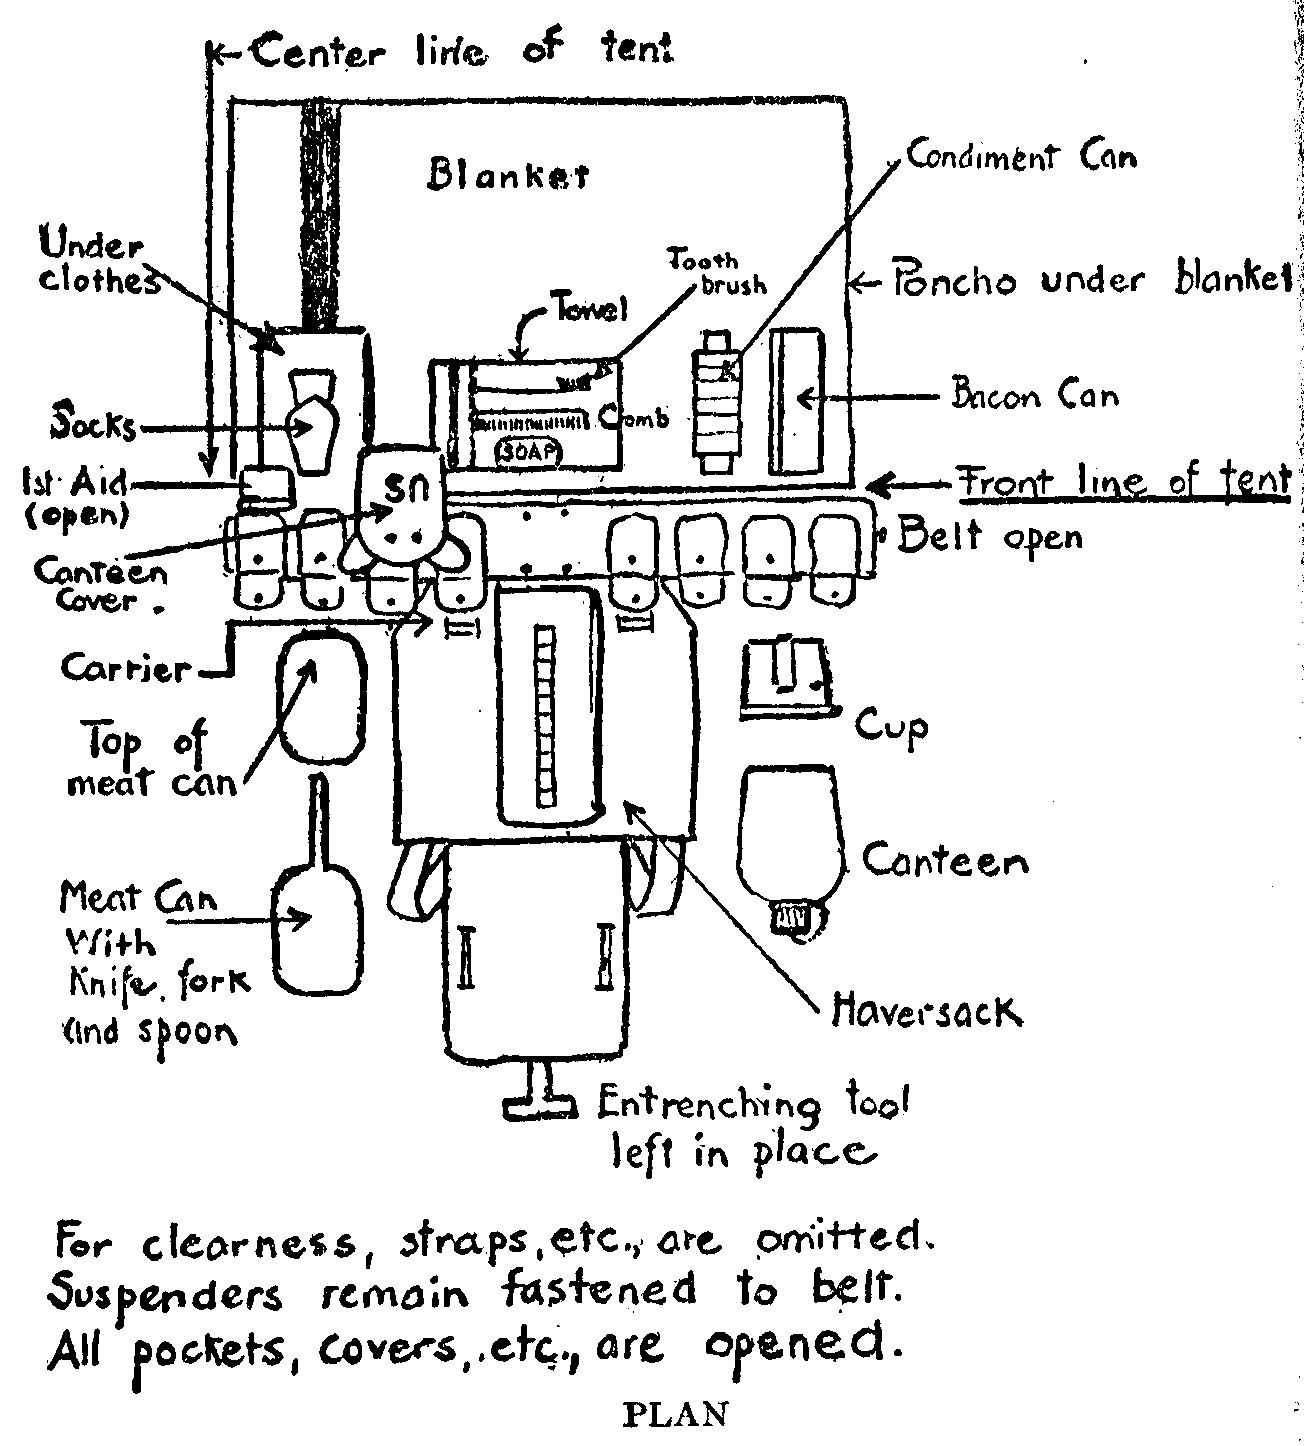 Center line of tent
Blanket
Condiment Can
Under
clothes
Tooth
brush
Poncho under blanket
Towel
Bacon Can
Socks
Comb
SOAP
1st Aid
(open)
Front line of tent
Belt open
Canteen
Cover.
Carrier
Top of
meat can
Cup
Canteen
Meat Can
With
Knife, fork
and spoon
Haversack
Entrenching tool
left in place
For clearness, straps, etc., are omitted.
Suspenders remain fastened to belt.
All pockets, covers, etc., are opened.
PLAN